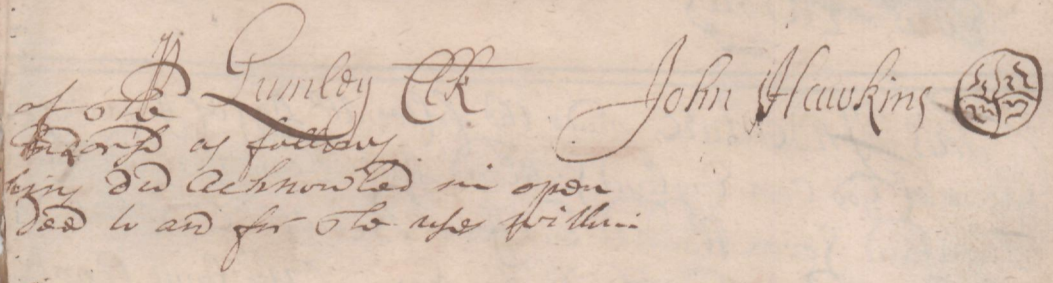 Lumley Clk John Hawkins
of the
Endorsd as follows
kins did acknowled in open
deed to and for the uses within